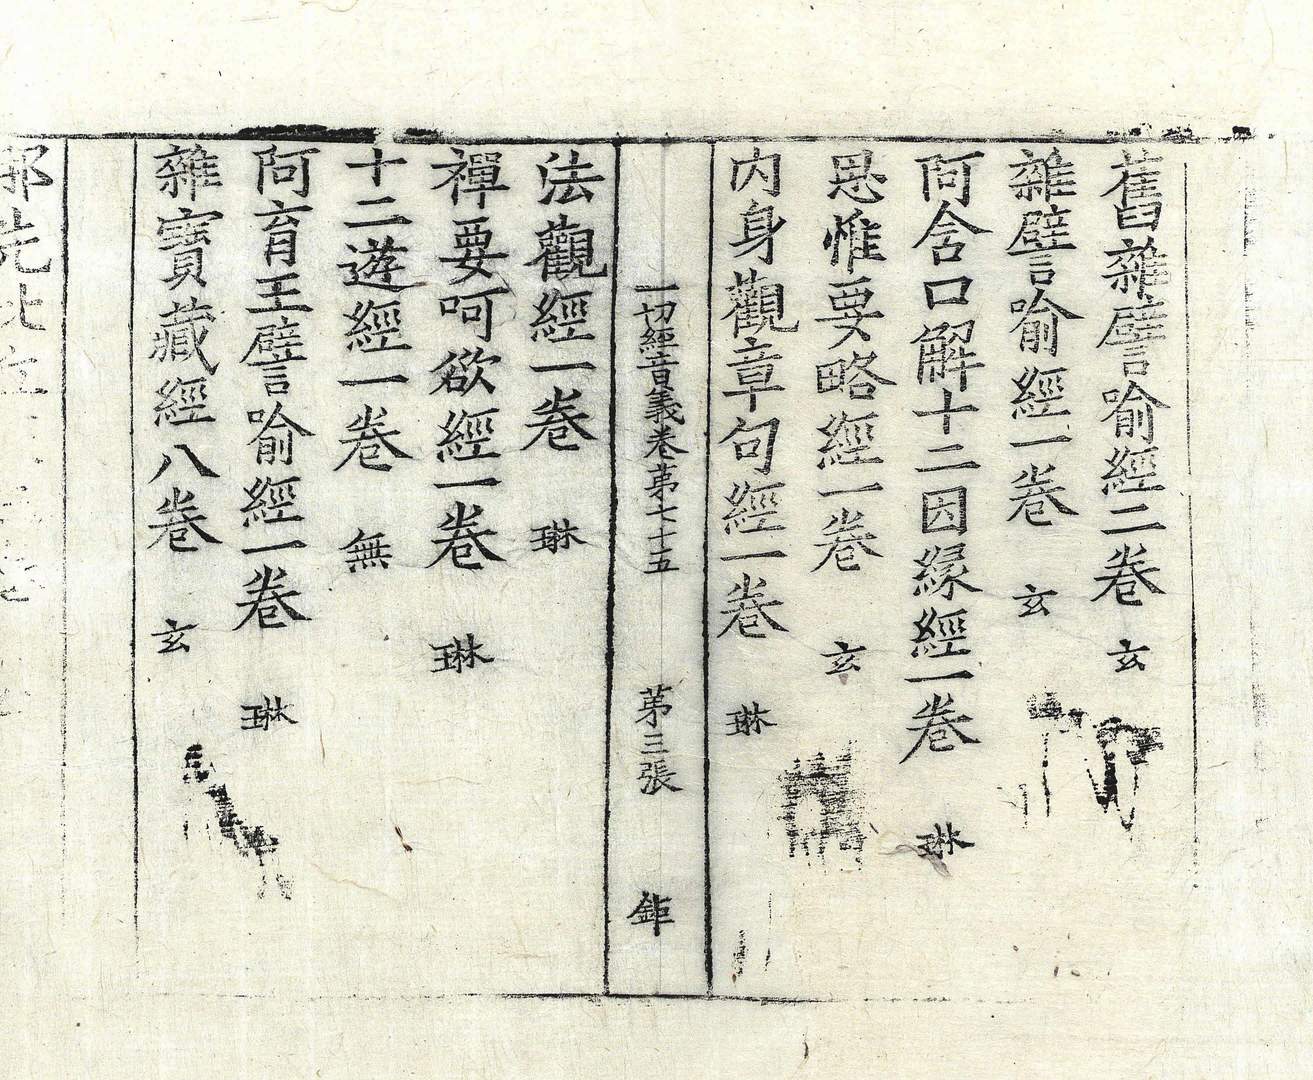 舊雜譬喻經二卷 玄
雜譬喻經一卷 玄
阿含口解十二因緣經一卷 琳
思惟要略經一卷 玄
內身觀章句經一卷 琳
一切經音義卷苐七十五 苐三張 鉅
法觀經一卷 琳
禪要呵欲經一卷 琳
十二遊經一卷 無
阿育王譬喻經一卷 琳
雜寶藏經八卷 玄
那先